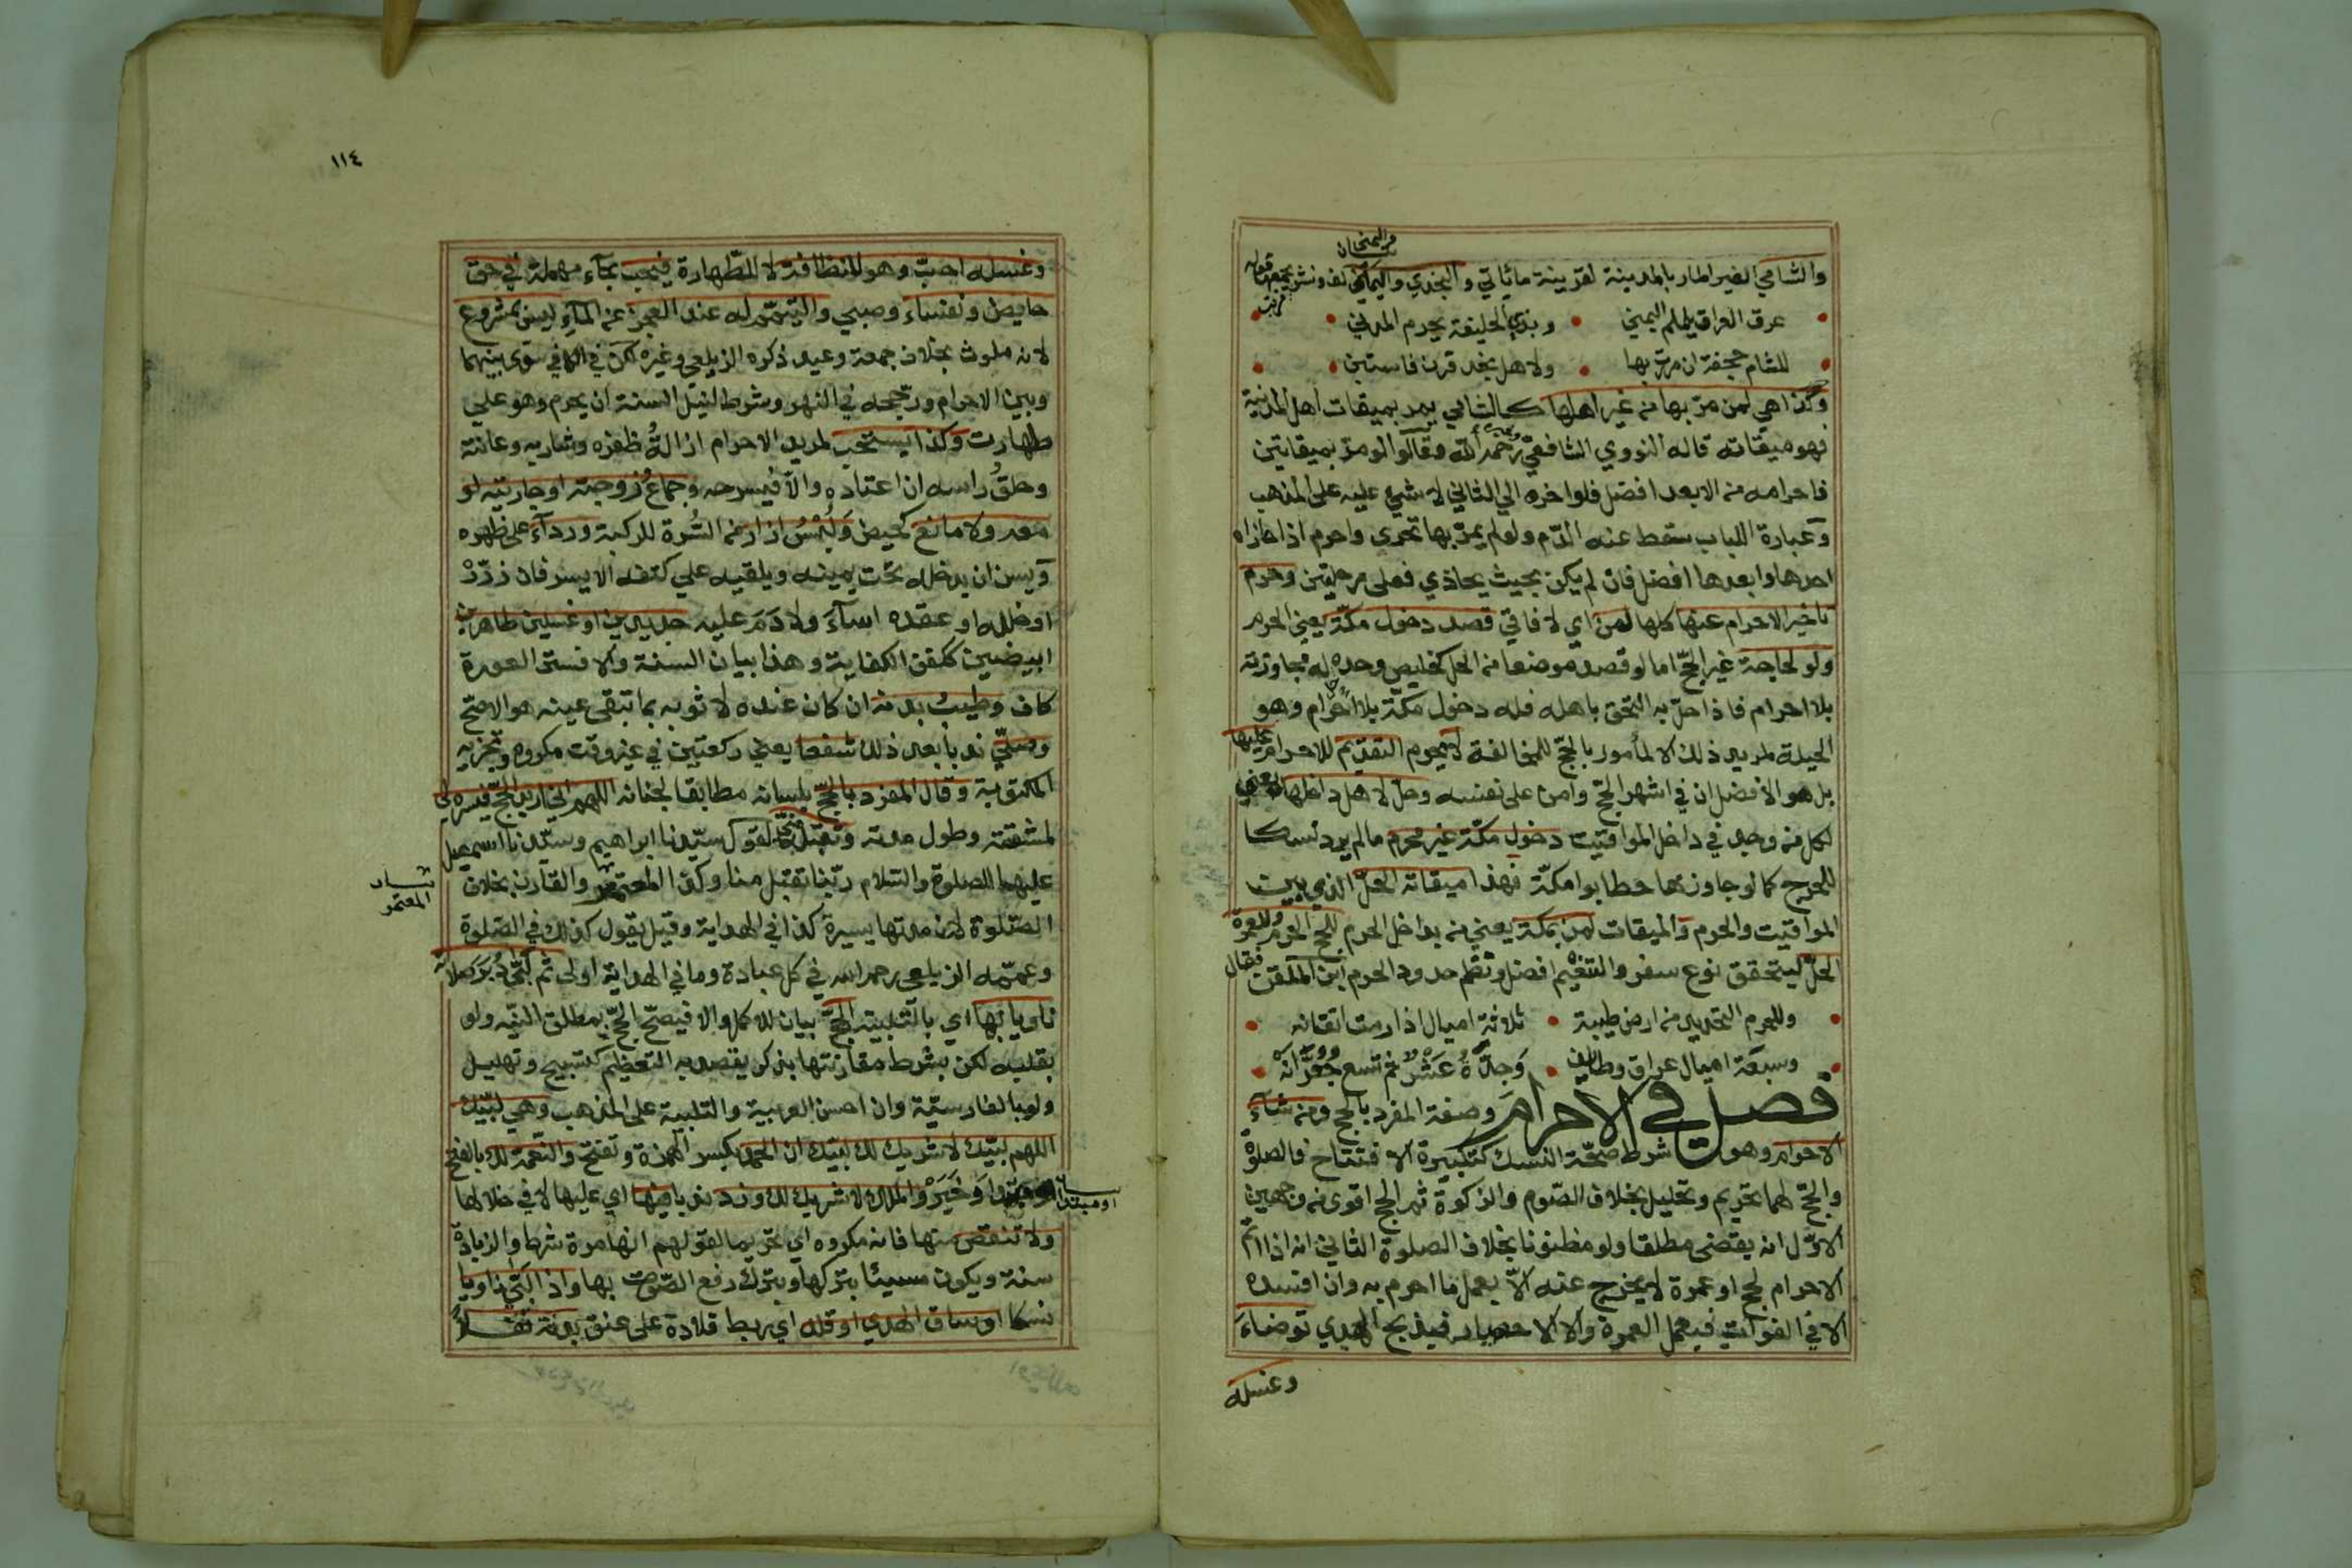 والشامي الغير المار بالمدينة لقرينة ما يأتي والنجدي واليماني لف ونشر يجمعها قوله
عرق العراق يلملم اليمني وبذي الحليفة يحرم المدني
للشام جحفة ان مررت بها ولاهل نجد قرن فاستبن
وكذا هي لمن مر بها من غير اهلها كالشامي يمر بميقات اهل المدينة
فهو ميقاته قاله النووي الشافعي رحمه الله وقالوا لو مر بميقاتين
فاحرامه من الابعد افضل فلو اخره الي الثاني لا شيء عليه على المذهب
وعبارة اللباب سقط عنه الدم ولو لم يمر بها تحرى واحرم اذا حاذاه
احدها وابعدها افضل فان لم يكن بحيث يحاذي فعلى مرحلتين وحرم
تاخير الاحرام عنها كلها لمن اي لآفاقي قصد دخول مكة يعني الحرم
ولو لحاجة غير الحج اما لو قصد موضعا من الحل كخليص وجده حل له مجاوزته
بلا احرام فاذا حل به التحق باهله فله دخول مكة بلا احرام وهو
الحيلة لمريد ذلك الا لمأمور بالحج للمخالفة لا يحرم التقديم للاحرام عليها
بل هو الافضل ان في اشهر الحج وامن على نفسه وحل لاهل داخلها يعني
لكل من وجد في داخل المواقيت دخول مكة غير محرم ما لم يرد نسكا
للحرج كما لو جاوزها حطابوا مكة فهذا ميقاته الحل الذي بين
المواقيت والحرم والميقات لمن بمكة يعني من بداخل الحرم للحج الحرم وللعمرة
الحل ليتحقق نوع سفر والتنعيم افضل ونظم حدود الحرم ابن الملقن فقال
وللحرم التحديد من ارض طيبة ثلاثة اميال اذا رمت اتقانه
وسبعة اميال عراق وطائف وجدة عشر ثم تسع جعرانه
فصل في الاحرام وصفة المفرد بالحج ومن شاء
الاحرام وهو شرط صحة النسك كتكبيرة الافتتاح فالصلوة
والحج لهما تحريم وتحليل بخلاف الصوم والزكوة ثم الحج اقوى من وجهين
الاول انه يقضى مطلقا ولو مظنونا بخلاف الصلوة الثاني انه اذا اتم
الاحرام لحج او عمرة لا يخرج عنه الا بعمل ما احرم به وان افسده
الا في الفوات فيعمل العمرة والا الاحصار فيذبح الهدي توضاء
وغسله
١١٤
وغسله احب وهو للنظافة لا للطهارة فيحب بحاء مهملة في حق
حايض ونفساء وصبي والتيمم له عند العجز عن الماء ليس بمشروع
لانه ملوث بخلاف جمعة وعيد ذكره الزيلعي وغيره لكن في الكافي سوى بينهما
وبين الاحرام ورجحه في النهر وشرط لنيل السنة ان يحرم وهو على
طهارت وكذا يستحب لمريد الاحرام ازالة ظفره وشاربه وعانته
وحلق راسه ان اعتاده والا فيسرحه وجماع زوجته او جاريته لو
معه ولا مانع كحيض ولبس ازار من السرة للركبة ورداء على ظهره
ويسن ان يدخله تحت يمينه ويلقيه علي كتفه الايسر فان زرره
او خلله او عقده اساء ولا دم عليه جديدين او غسيلين طاهرين
ابيضين ككفن الكفاية وهذا بيان السنة والا فستر العورة
كاف وطيب بدنه ان كان عنده لا ثوبه بما تبقى عينه هو الاصح
وصلي ندبا بعد ذلك شفعا يعني ركعتين في غير وقت مكروه وتجزيه
المكتوبة وقال المفرد بالحج بلسانه مطابقا لجنانه اللهم اني اريد الحج فيسره لي
لمشقته وطول مدته وتقبله مني لقول سيدنا ابراهيم وسيدنا اسمعيل
عليهما الصلوة والسلام ربنا تقبل منا وكذا المعتمر والقارن بخلاف
المعتمر
الصلوة لان مدتها يسيرة كذا في الهداية وقيل يقول كذلك في الصلوة
وعممه الزيلعي رحمه الله في كل عبادة وما في الهداية اولى ثم لبى دبر صلاته
ناويا بها اي بالتلبية الحج بيان للاكمل والا فيصح الحج بمطلق النية ولو
بقلبه لكن بشرط مقارنتها بذكر يقصد به التعظيم كتسبيح وتهليل
ولو بالفارسية وان احسن العربية والتلبية على المذهب وهي لبيك
اللهم لبيك لا شريك لك لبيك ان الحمد بكسر الهمزة وتفتح والنعمة لك بالفتح
او مبتدا وخبر والملك لا شريك لك وزد ندبا فيها اي عليها لا في خلالها
ولا تنقص منها فانه مكروه اي تحريما لقولهم انها مرة شرط والزيادة
سنة ويكون مسيئا بتركها وبترك رفع الصوت بها واذا لبى ناويا
نسكا او ساق الهدي او قلد اي ربط قلادة على عنق بدنة نفلا